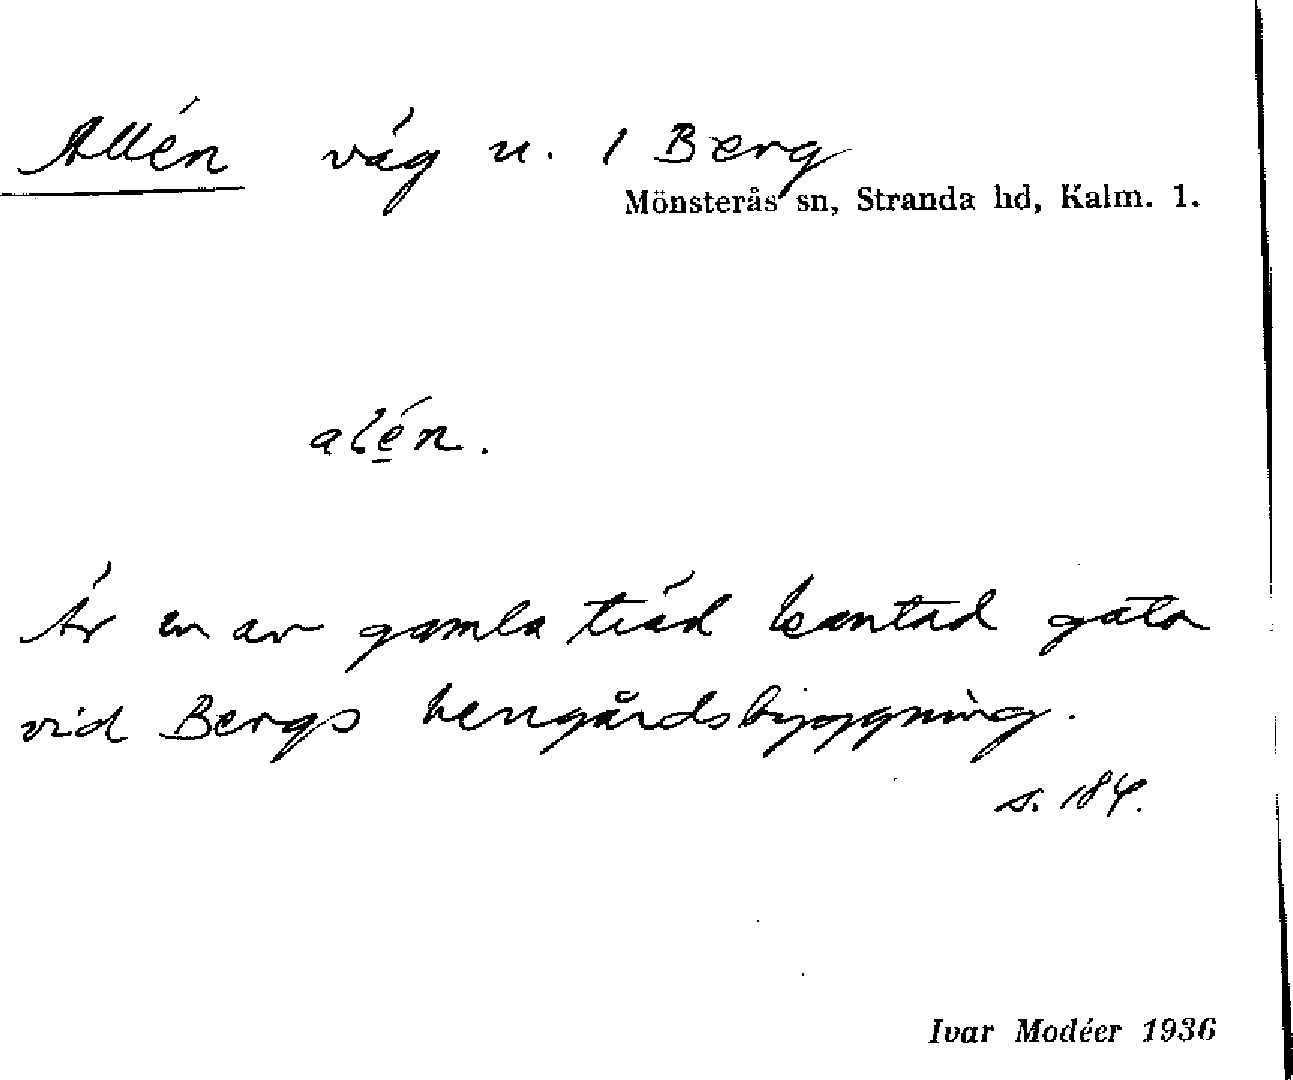 Allén väg u. 1 Berg
Mönsterås sn, Stranda hd, Kalm. l.
alén.
Är en av gamla träd kantad gata
vid Bergs herrgårdsbyggning.
s. 184.
Ivar Modéer 1936